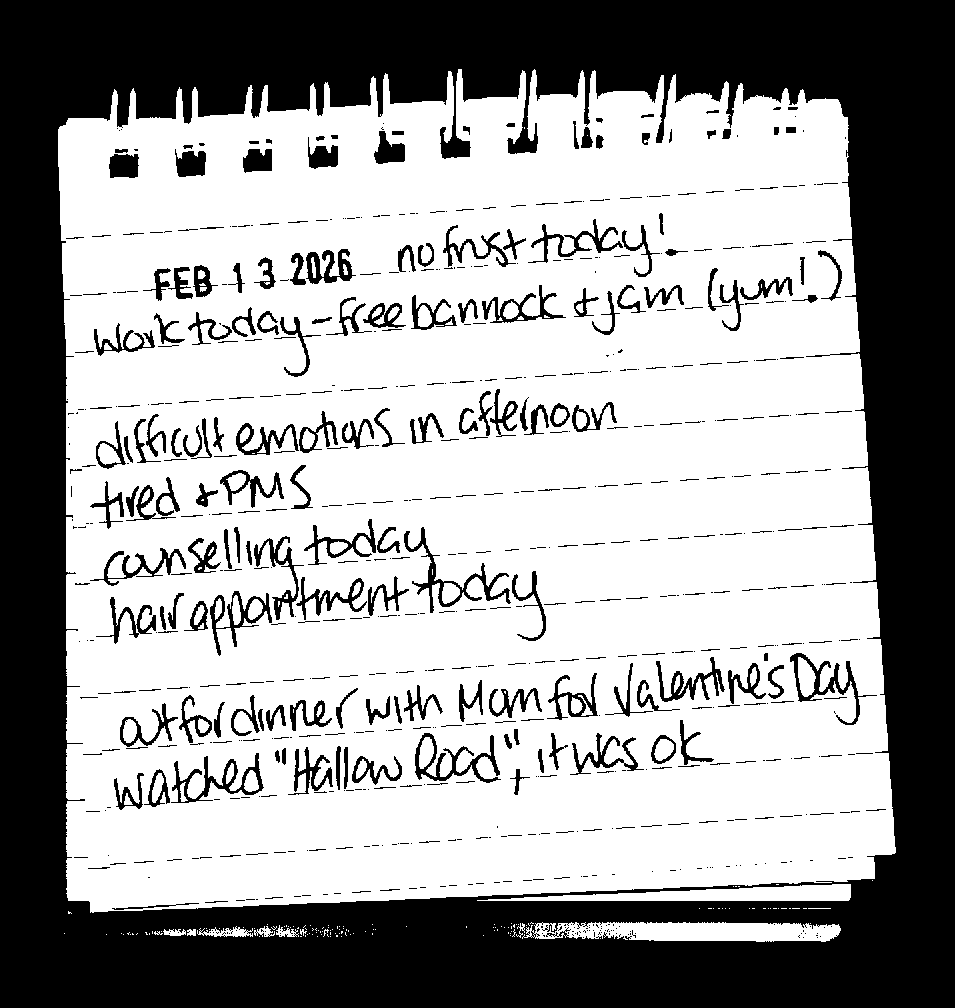 FEB 13 2026 no frust today!
work today - free bannock + jam (yum!)
difficult emotions in afternoon
tired + PMS
counselling today
hair appointment today
out for dinner with Mom for Valentine's Day
watched "Hallow Road", it was ok